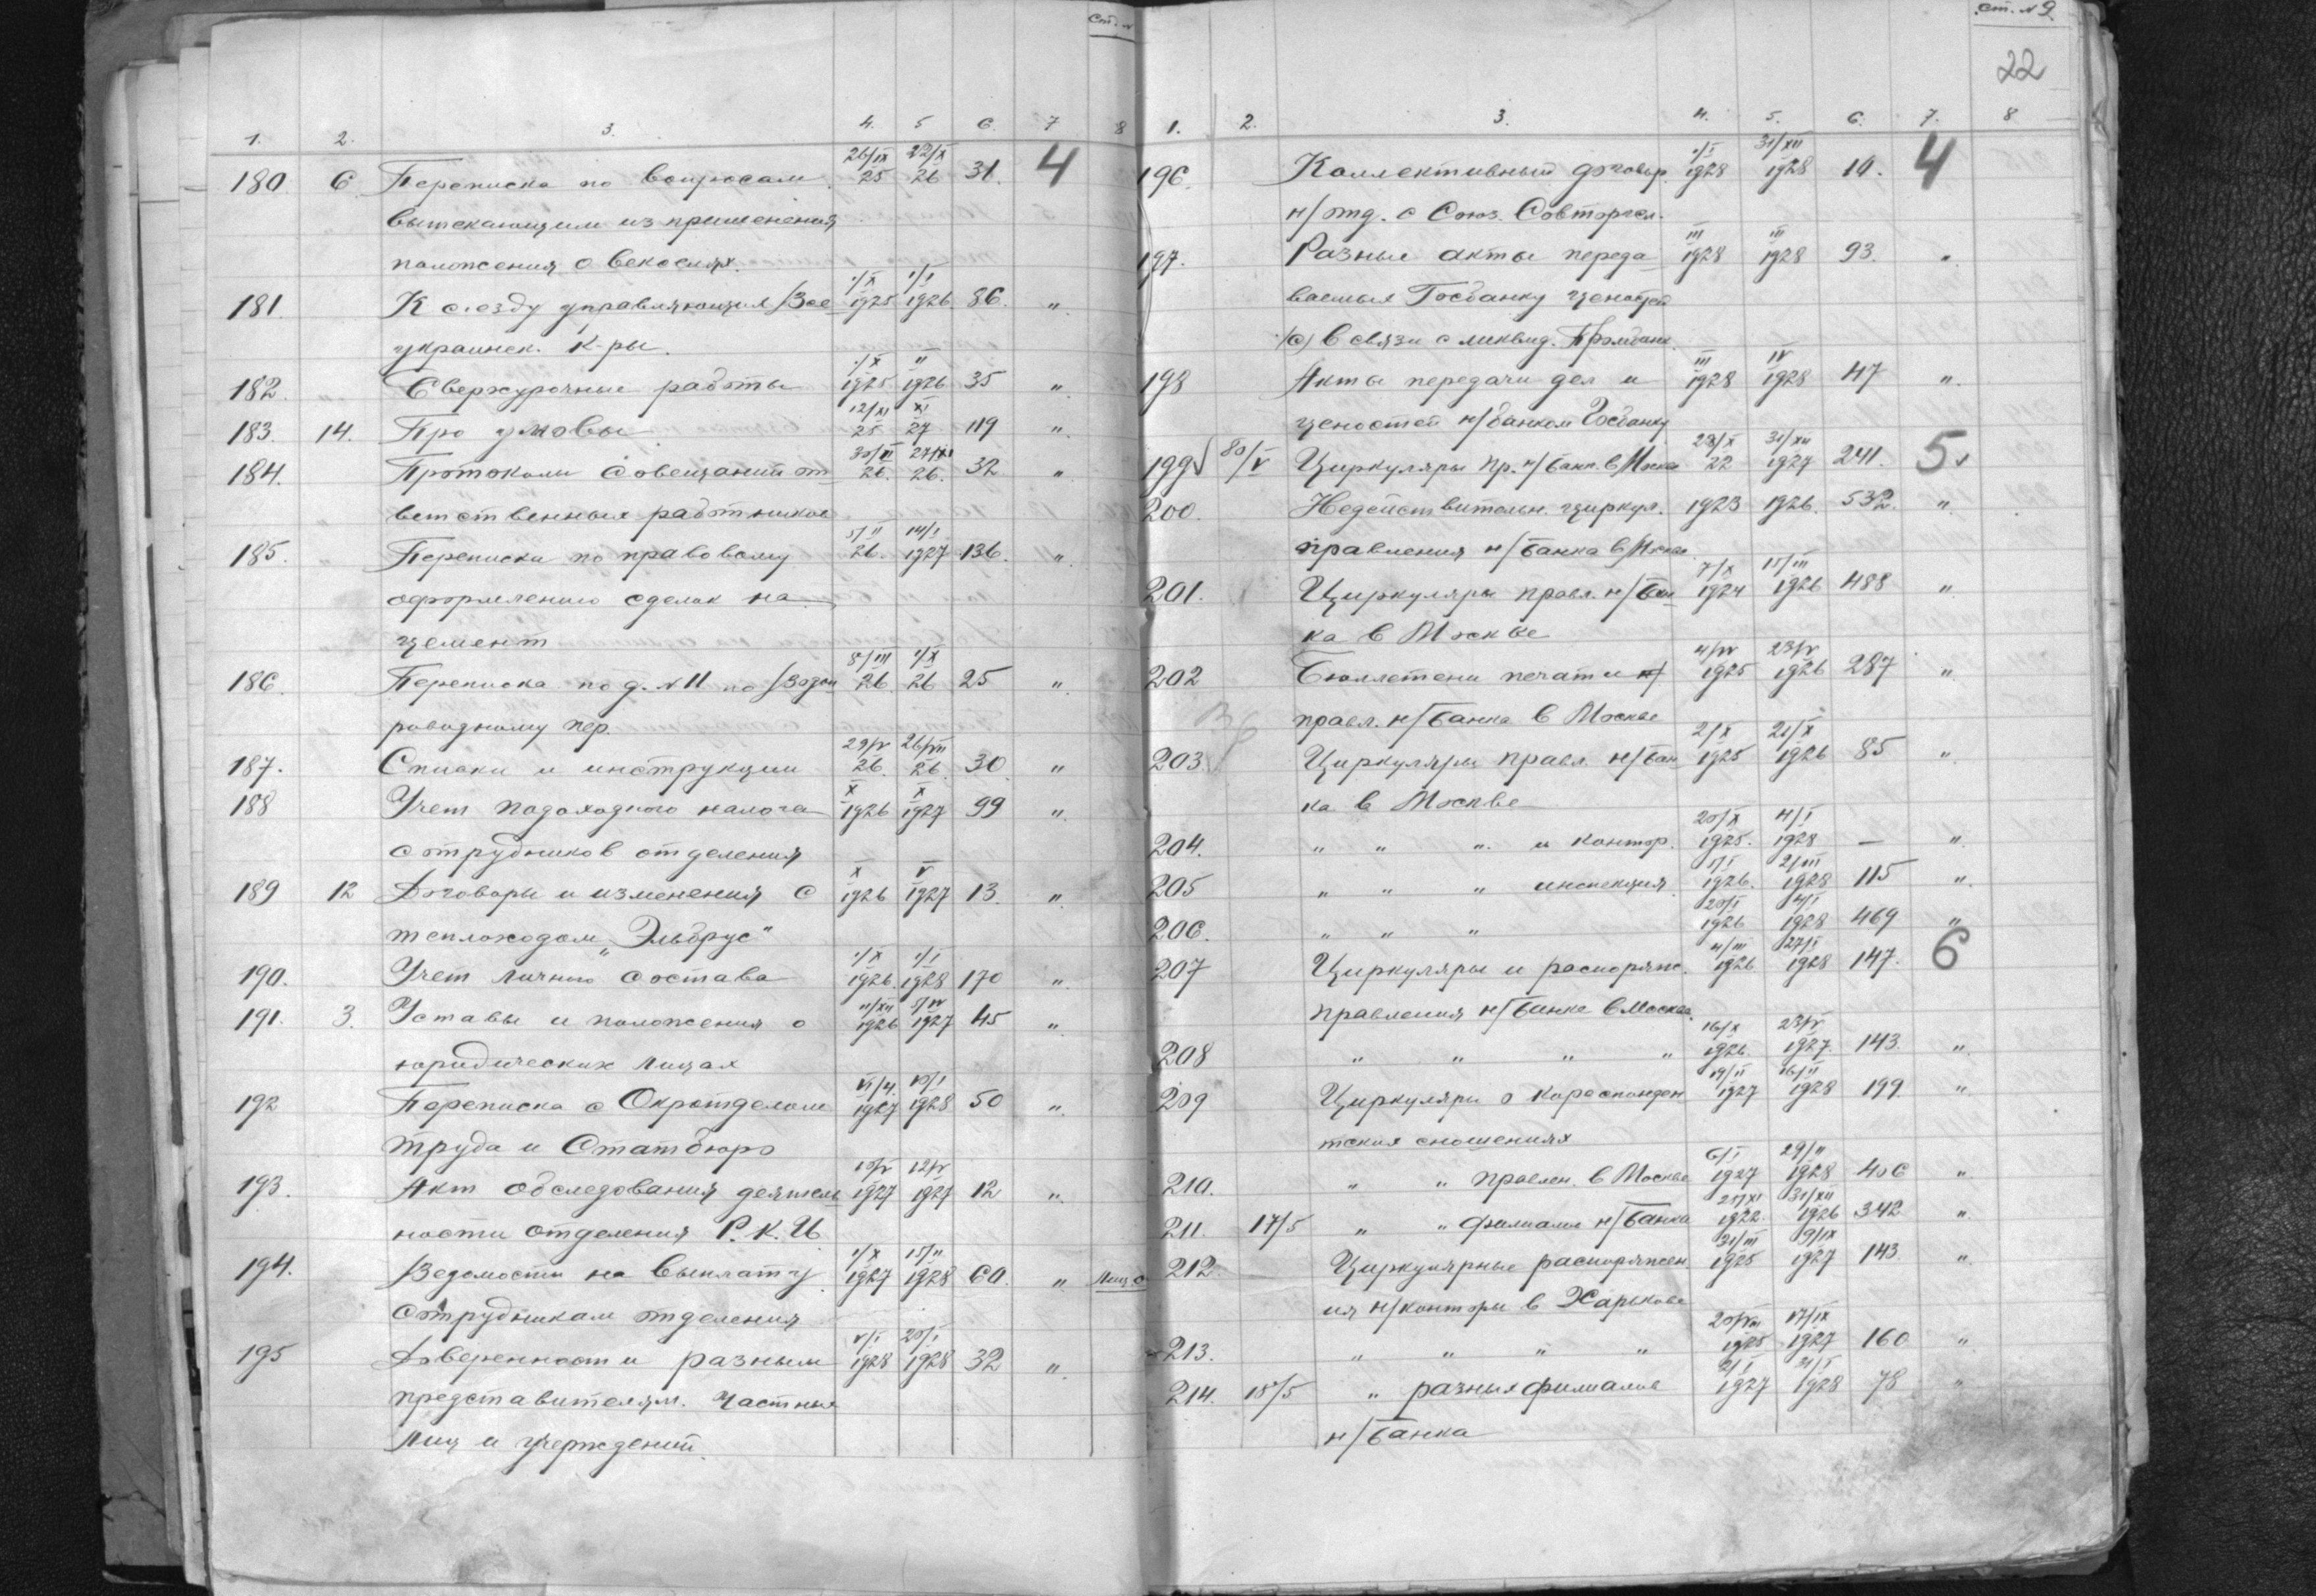 ст. №
1. 2. 3. 4. 5 6. 7 8
180. 6. Переписка по вопросам 26/IX 25 22/X 26 31. 4
вытекающим из применения
положения о векселях.
181. К с'езду управляющих Все 1/X 1925 1/I 1926 86. "
украинск. К-ры.
182. Сверхурочные работы 1/X 1925 II 1926 35 "
183. 14. Про умовы 12/XI 25 XI 27 119 "
184. Протоколы Совещаний от 26. 26. 32 "
ветственных работников
185. Переписка по правовому 5/II 26. 14/I 1927 136. "
оформлению сделок на
цемент
186. Переписка по д. № 11 по 8/III 26 1/X 26 25 "
роводному пер.
187. Списки и инструкции 29/IV 26. 26/VII 26 30 "
188 Учет подоходного налога X 1926 X 1927 99 "
сотрудников отделения
189 12 Договоры и изменения с X 1926 V 1927 13. "
теплоходом „Эльбрус"
190. Учет личного состава 1/X 1926. 1/I 1928 170 "
191. 3. Уставы и положения о 11/XII 1926 5/IV 1927 45 "
юридических лицах
192 Переписка с Окротделом 1927 10/I 1928 50 "
труда и Статбюро
193. Акт обследования деятель 10/V 1927 12/V 1927 12 "
ности отделения Р.К.И.
194. Ведомости на выплату 1/X 1927 15/II 1928 60. "
сотрудникам отделения
195 Доверенности разным 1928 20/I 1928 32 "
представителям. Частных
лиц и учреждений.
ст. № 9.
22
1. 2. 3. 4. 5. 6. 7. 8
196. Коллективный договор. 1/I 1928 31/XII 1928 10. 4
н/отд. с Союз. Совторгсл.
197. Разные акты переда III 1928 III 1928 93. "
ваемых Госбанку
в связи с ликвид. Промбанк.
198 Акты передачи дел и III 1928 IV 1928 47 "
ценостей н/банком Госбанку
199 80/V Циркуляры пр. н/Банк. в Москв 23/X 22 31/XII 1927 241. 5
200. Недействительн. циркул. 1923 1926. 532. "
правления н/Банка в Москве
201. Циркуляры правл. н/Бан 7/X 1924 15/III 1926 488 "
ка в Москве
202 Бюллетени печати 4/IV 1925 23/IV 1926 287 "
правл. н/Банка в Москве
203. Циркуляры правл. н/Бан 2/X 1925 21/X 1926 85 "
ка в Москве
204. " " " и контор. 20/X 1925. 4/I 1928 — "
205 " " " инспекция 1926. 2/III 1928 115 "
206. " " " 20/I 1926 4/I 1928 469 "
207 Циркуляры и распоряж. 4/III 1926 27/I 1928 147. 6
правления н/Банка в Москве.
208 " " " " 16/X 1926. 23/V 1927. 143. "
209 Циркуляры о кореспонден 19/II 1927 16/II 1928 199. "
тских сношениях
210. " " правлен. в Москве 6/I 1927 29/II 1928 406 "
211. 17/5 " " филиалов н/Банка 1922. 31/XII 1926 342 "
212. Циркулярные распоряжен 31/III 1925 9/IX 1927 143. "
ия н/конторы в Харькове
213. " " " " 20/VIII 1925 17/IX 1927 160 "
214. 18/5 " разных филиалов 2/I 1927 1928 78 "
н/Банка